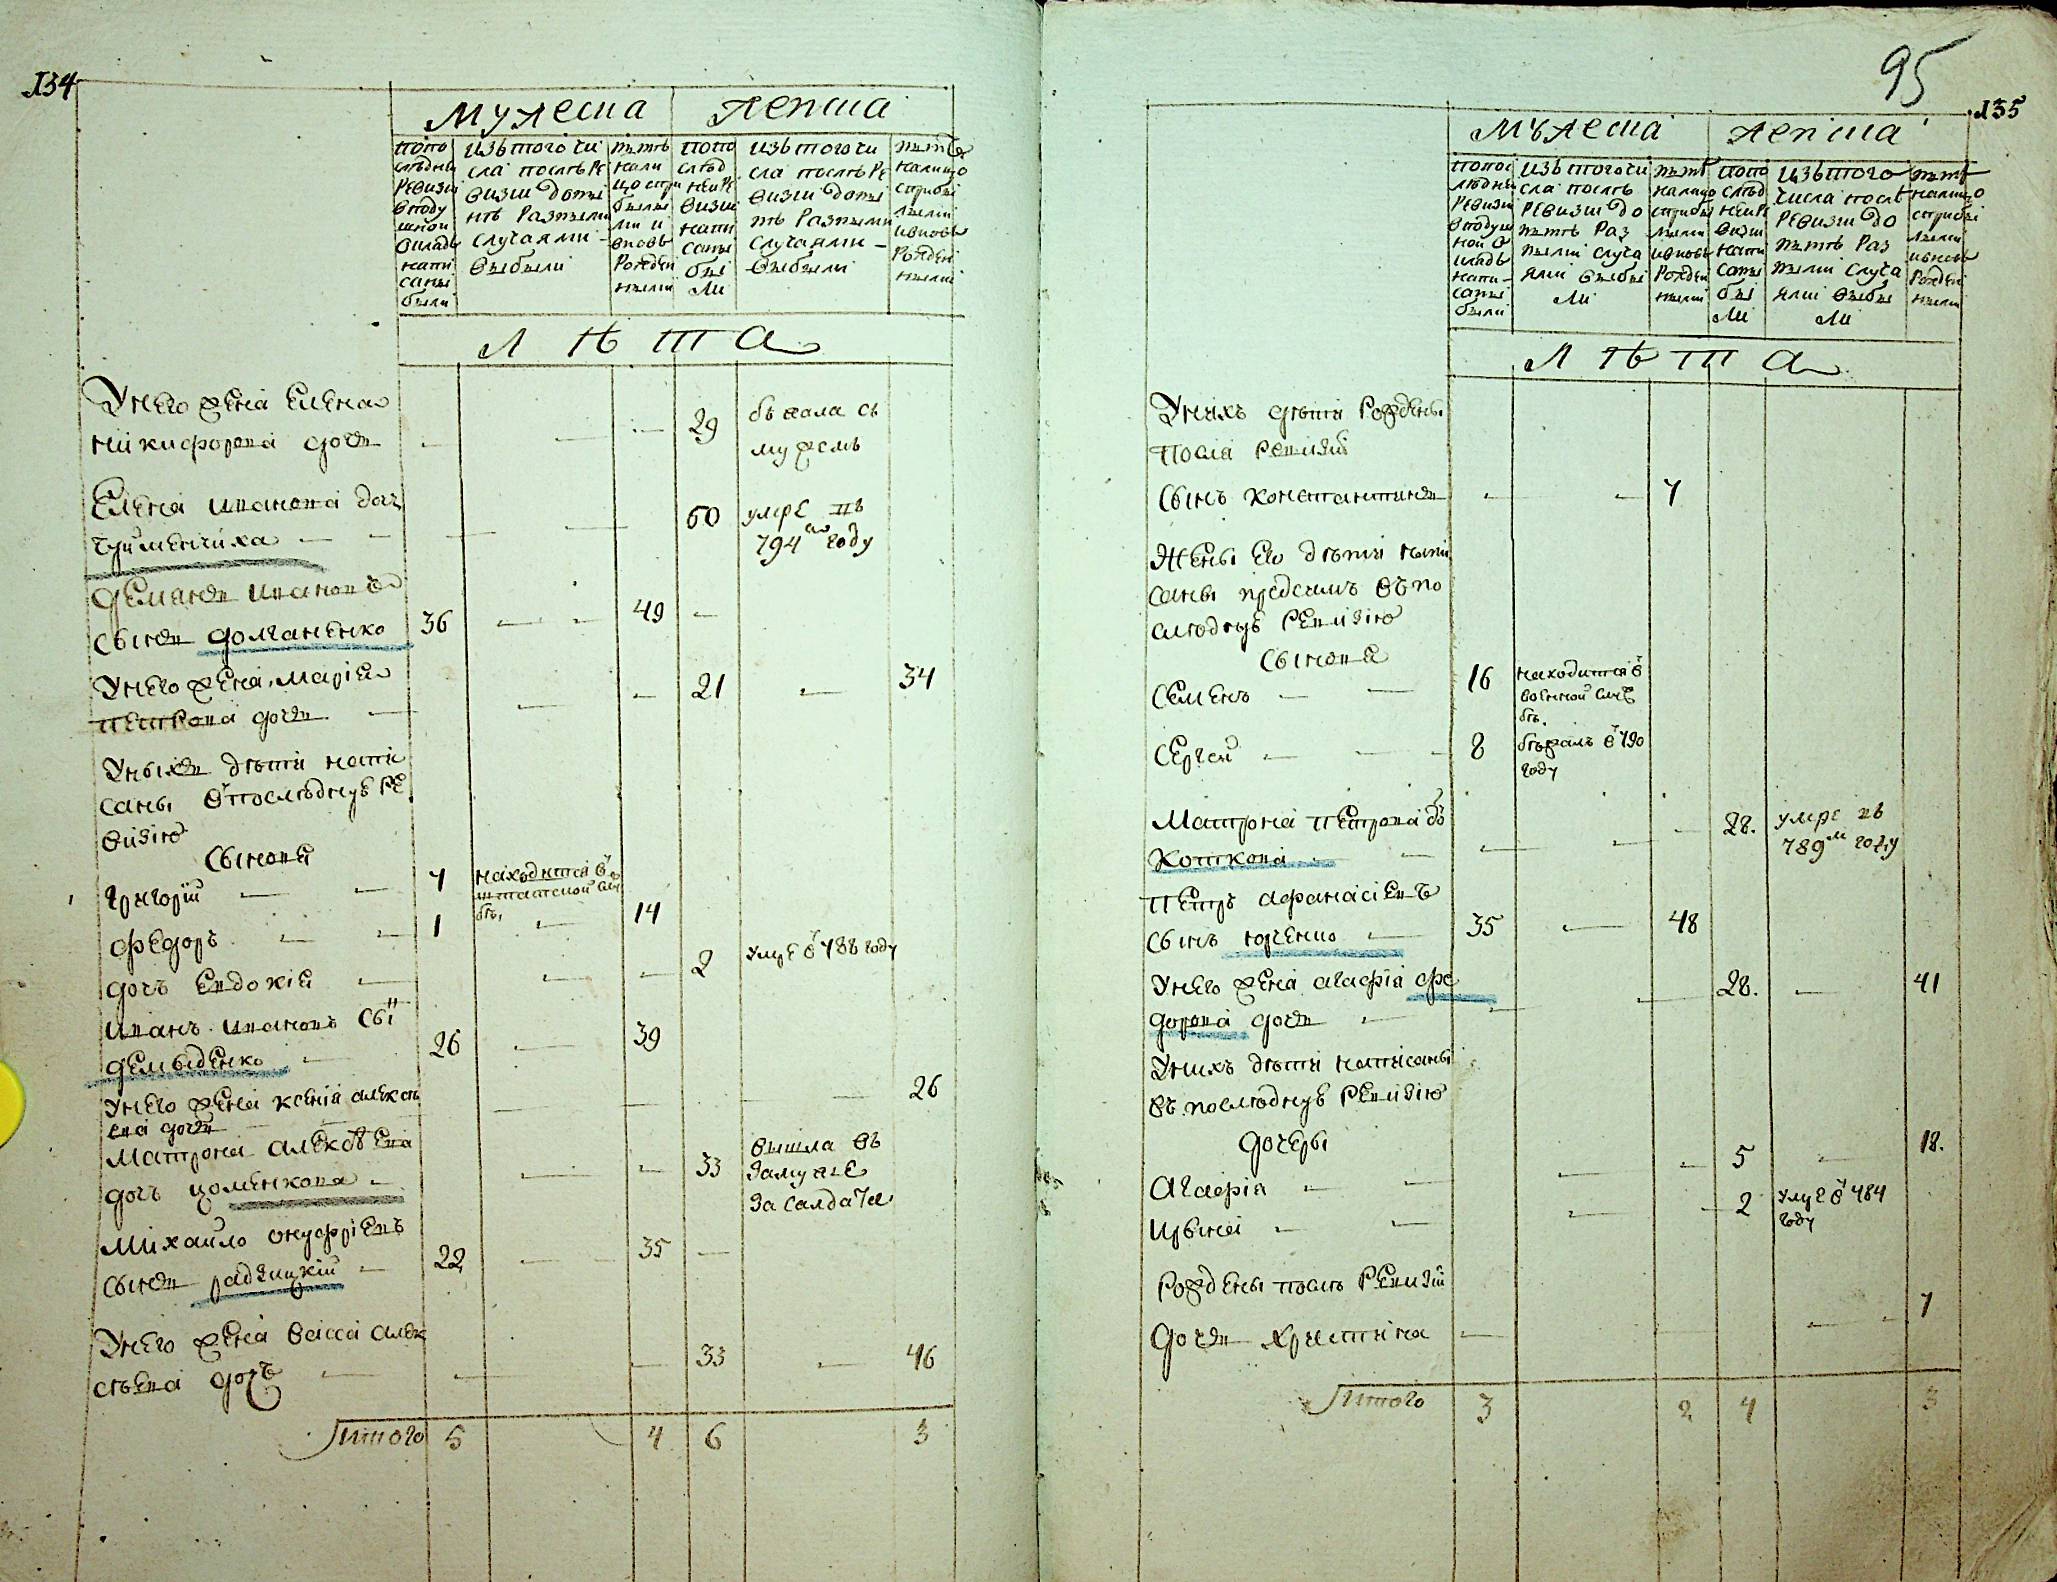 134
мужеска женска
попо
следней
ревизии
вподу
шной
окладъ
напи
саны
были
изъ того чи
сла послѣ ре
визии доны
нѣ разными
случаями
выбыли
нынѣ
нали
цо спри
былы
ми и
вновь
рожден
ными
попо
слѣд
ней ре
визии
напи
саны
бы
ли
изъ того чи
сла послѣ ре
визии доны
нѣ разными
случаями
выбыли
нынѣ
налицо
сприбы
лыми
ивновь
рожден
ными
лѣта
Унего жена Елена 29 бѣжала съ
никифорова дочь мужемъ
Елена иванова доч 60 умре въ
794 году
демянъ ивановъ
сынъ долганенко 36 49
Унего жена марiя 21 34
петрова дочь
Уныхъ дѣти напи
саны впослѣднуе ре
визiю
сынова
григорiй 7 находится в
штатской слу
жбѣ
федоръ 1 14
дочь евдокiя 2 умре в 788 году
иванъ ивановъ сы
демыденко 26 39
унего жена ксенiя алекси 26
ева дочь
матрона алексѣева 33 вышла въ
замуже
дочь за салдата
михайло онуфрiевъ
сынъ радзицкiй 22 35
Унего жена васса алек 33 46
сѣева дочь
Итого 5 4 6 3
95
135
мужеска женска
попос
лѣдней
ревизии
вподуш
ной о
кладъ
напи
саны
были
изъ того чи
сла послѣ
ревизии до
нынѣ раз
ными случа
ями выбы
ли
нынѣ
налицо
сприбы
лыми
ивновь
рожден
ными
попо
слѣд
ней ре
визии
напи
саны
бы
ли
изъ того
числа послѣ
ревизии до
нынѣ раз
ными случа
ями выбы
ли
нынѣ
налицо
сприбы
лыми
ивновь
рожден
ными
лѣта
Унихъ дѣти рождены
посля ревизiй
сынъ константинъ 7
Жены ево дѣти напи
саны предсимъ въ по
слюднуе ревизiю
сынова
семенъ 16 находится в
военной служ
бѣ.
сергей 8 бѣжалъ в 790
году
матрона петрова до 28. умре въ
789м году
коткова
петръ афанасiевъ
сынъ юрченко 35 48
Унего жена агафiя фе 28. 41
дорова дочь
Унихъ дѣти написаны
въ послюднуе ревизiю
дочеры
Агафiя 5 18.
Ирына 2 умре в 784
году
рождены послѣ ревизiй
дочь христина 7
Итого 3 2 4 3